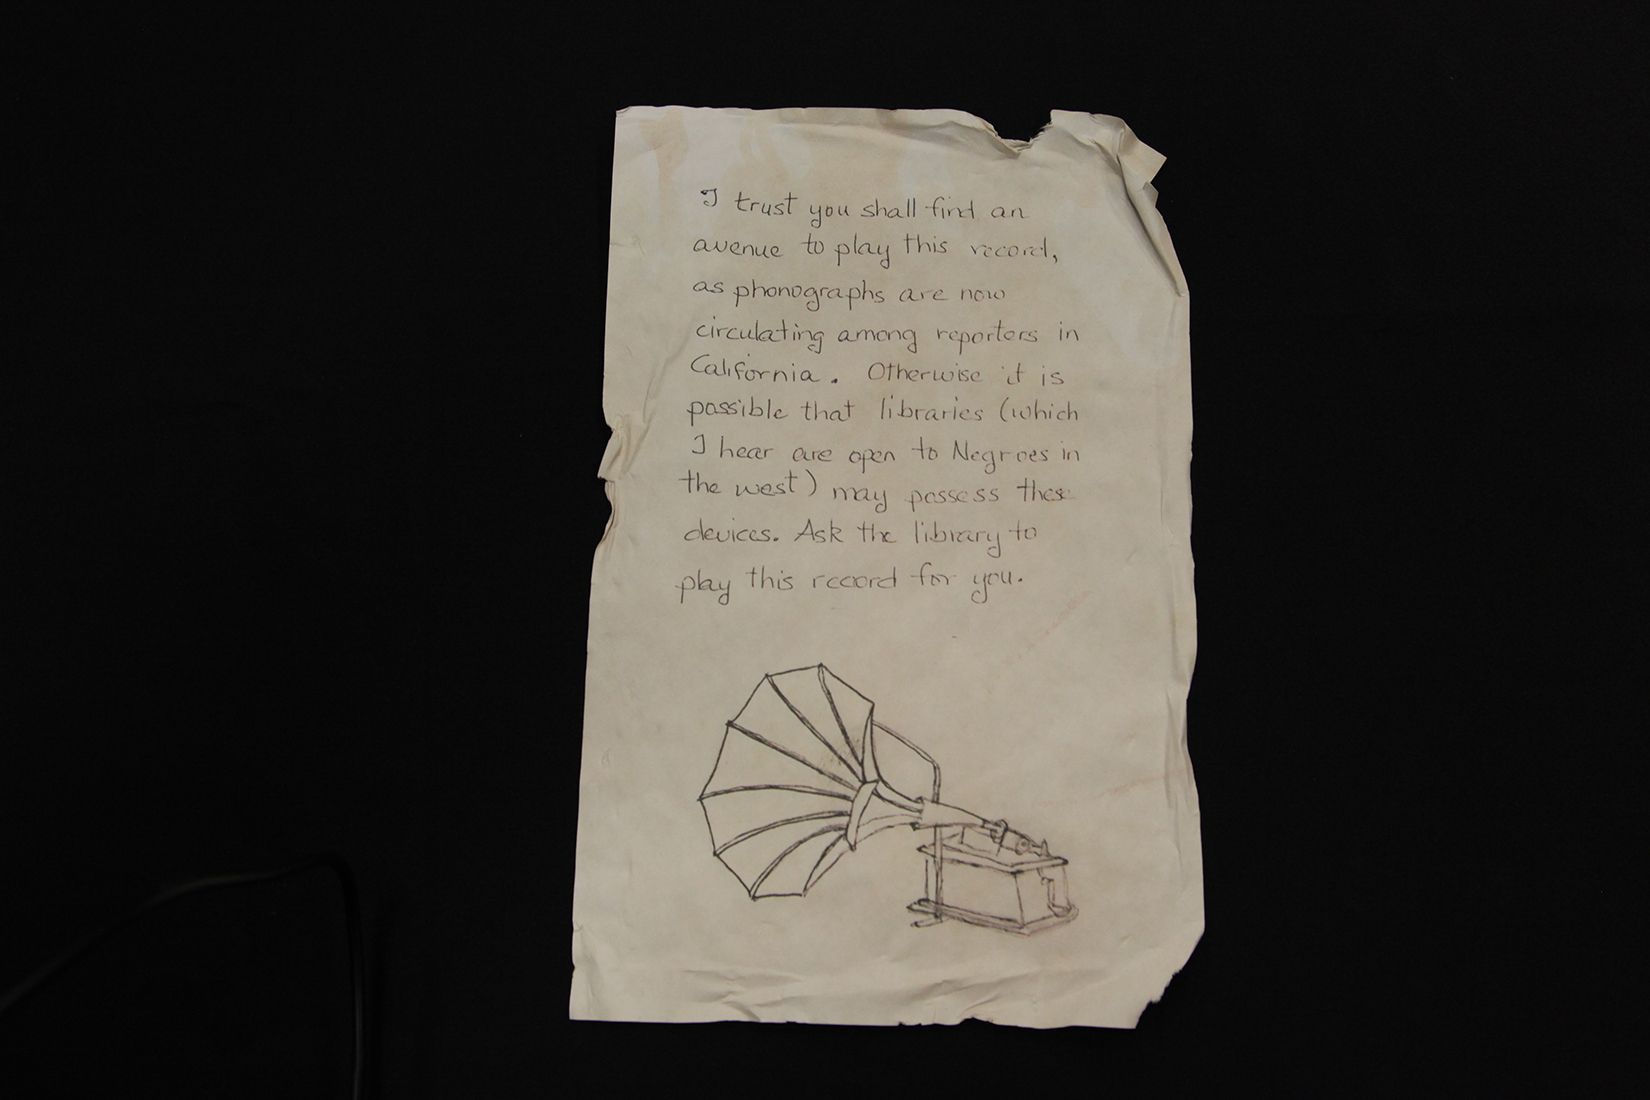 I trust you shall find an
avenue to play this record,
as phonographs are now
circulating among reporters in
California. Otherwise it is
possible that libraries (which
I hear are open to Negroes in
the west) may possess these
devices. Ask the library to
play this record for you.